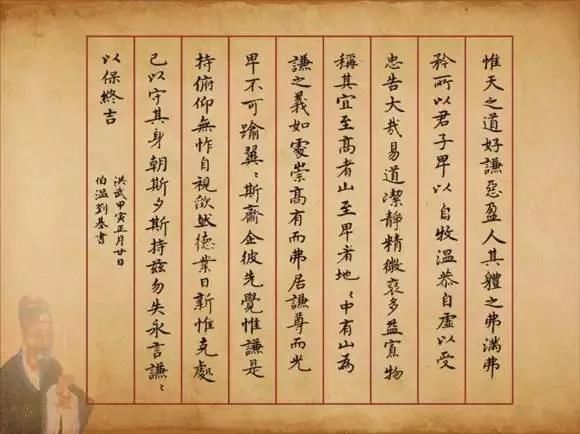 惟天之道好謙惡盈人其體之弗滿弗
矜所以君子卑以自牧溫恭自虛以受
忠告大哉易道潔靜精微裒多益寡物
稱其宜至高者山至卑者地〻中有山為
謙之義如霙崇高有而弗居謙尊而光
卑不可踰翼〻斯齋企彼先覺惟謙是
持俯仰無怍自視欿然德業日新惟克處
己以守其身朝斯夕斯持茲勿失永言謙〻
以保終吉
洪武甲寅正月廿日
伯溫劉基書